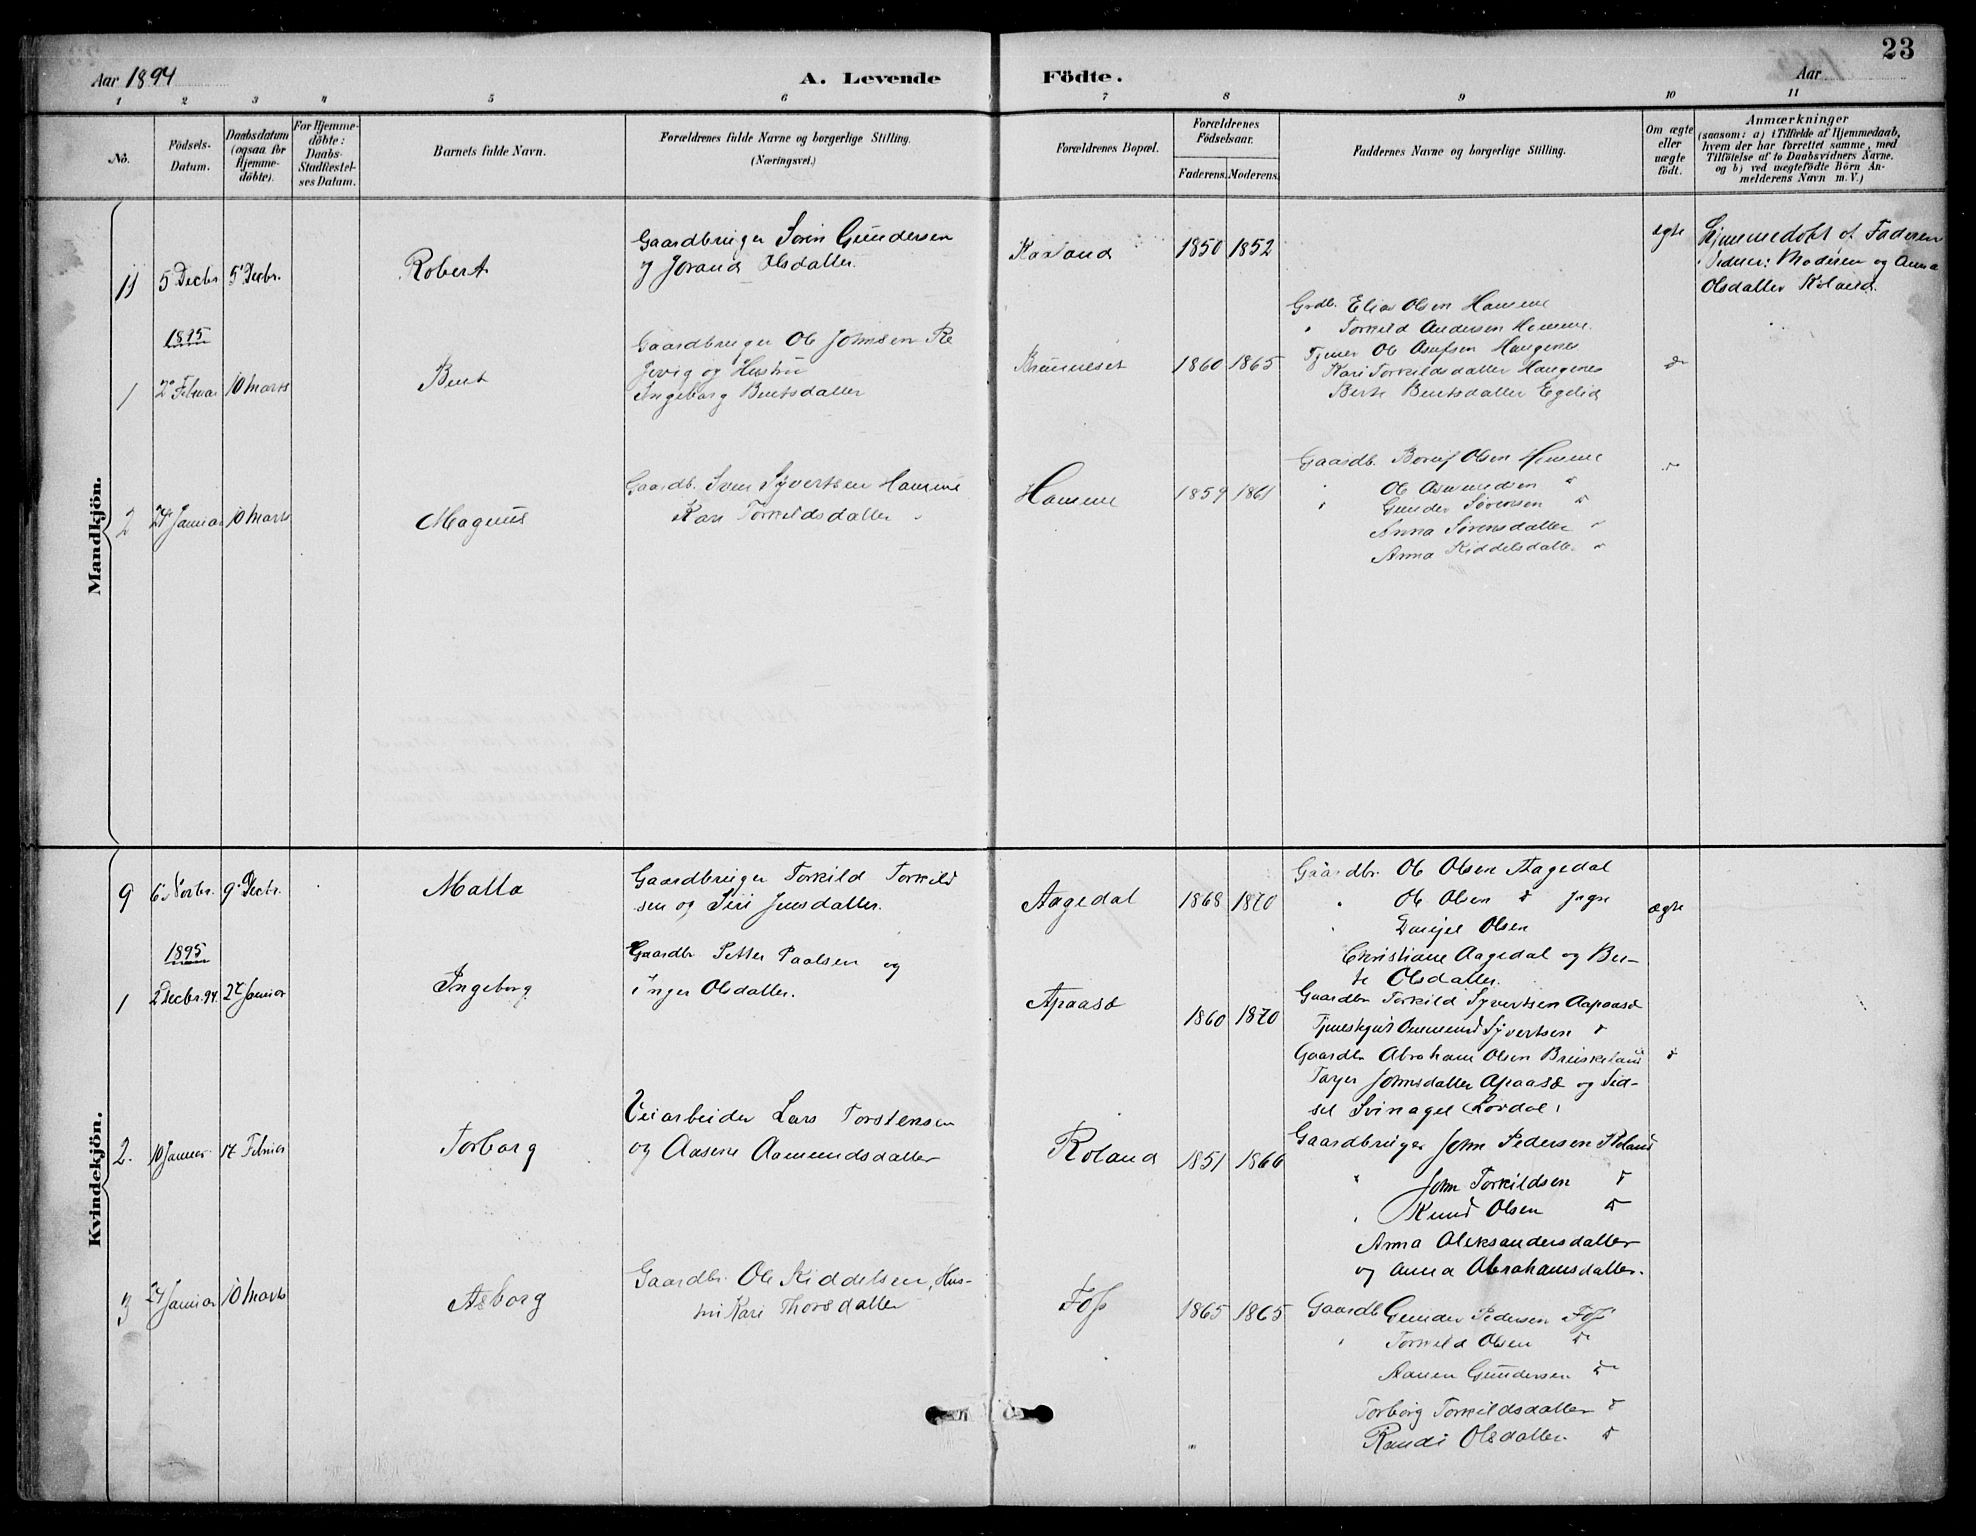 23
Aar 1894
A. Levende
Födte.
Aar
1 2 3 4 5 6 7 8 9 10 11
No.
Födsels-
Datum.
Daabsdatum
(ogsaa for
Hjemme-
döbte).
For Hjemme-
döbte:
Daabs-
Stadfæstel-
ses Datum.
Barnets fulde Navn.
Forældrenes fulde Navne og borgerlige Stilling.
(Næringsvei.)
Forældrenes Bopæl.
Forældrenes
Födselsaar.
Faderens. Moderens.
Faddernes Navne og borgerlige Stilling.
Om ægte
eller
uægte
født.
Anmærkninger
(saasom: a) i Tilfælde af Hjemmedaab,
hvem der har forrettet samme, med
Tilföielse af to Daabsvidners Navne.
og b) ved uægtefödte Börn An-
melderens Navn m. V.)
Mandkjön.
11
5 Decbr
5 Decbr.
Robert
Gaardbruger Sören Gundersen
og Jorand Olsdatter.
1850 1852
ægte
Hjemmedöbt af Faderen
Moderen og Anna
Olsdatter
1895
1
2 Februar
10 Marts
Bent
Gaardbruger Ole Johnsen
og Hustru
Ingeborg Bentsdatter
1860 1865
Grdb. Elias Olsen Hamme
" Torkild Andersen
Tjener Ole
Kari Torkildsdatter
Berte Bentsdatter Egelid
d
2
24 Januar
10 Marts
Magnus
Gaardb. Sven Syvertsen
Kari Torkildsdatter
1859 1861
Gaardb. Olsen
" Ole d
" Gunder Sörensen d
Anna Sörensdatter
Anna Kiddelsdatter
d
Kvindekjön.
9
6 Novbr.
9 Decbr.
Malla
Gaardbruger Torkild Torkild
sen og Siri Jensdatter.
Aagedal
1868 1870
Gaardbr. Ole Olsen Aagedal
" Ole Olsen d
Olsen
Christiane Aagedal og Ber-
te Olsdatter.
ægte
1895
1
2 Decbr. 94.
27 Januar
Ingeborg
Gaardbr. Petter Paalsen og
Inger Olsdatter.
Apaasd
1860 1870
Gaardbr Torkild Syvertsen Aapaasd
Syvertsen d
Gaardbr Abraham Olsen
Johnsdatter Apaasd og Sid-
sel
d
2.
10 Januar
17 Februar
Torborg
Veiarbeider Lars Torstensen
og Aasene Aamundsdatter
Roland
1851 1866
Gaardbruger John Pedersen Roland
" John Torkildsen d
" Knud Olsen d
Anna Aleksandersdatter
og Anna Abrahamsdatter.
3
24 Januar
10 Marts
Asborg
Gaardbr. Ole Kiddelsen, Hus-
tru Kari Thorsdatter
Foss
1865 1865
Gaardb. Gunder Pedersen Foss
" Torkild Olsen d
Aanen Gundersen d
Torborg Torkildsdatter d
Randi Olsdatter d